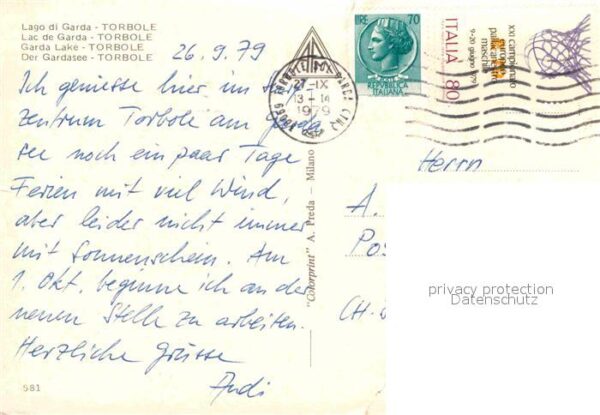 Lago di Garda - TORBOLE
Lac de Garda - TORBOLE
Garda Lake - TORBOLE
Der Gardasee - TORBOLE
26.9.79
Ich geniesse hier im
zentrum Torbole am Garda
see noch ein paar Tage
Ferien mit viel Wind,
aber leider nicht immer
mit Sonnenschein. Am
1. Okt. beginne ich an der
neuen Stelle zu arbeiten.
Herzliche Grüsse
Andi
S81
"Colorprint" A. Preda - Milano
LIRE 70
REPVBBLICA
ITALIANA
ITALIA 80
XXI campionato
europeo
pallacanestro
maschile
9-20 giugno 1979
27-IX
13-14
1979
Herrn
A.
Pos
CH-
privacy protection
Datenschutz